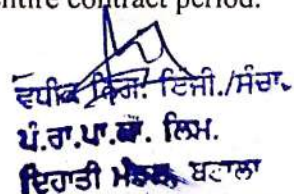 entire contract period.
ਵਧੀਕ ਨਿਗ. ਇੰਜੀ./ਸੰਚਾ.
ਪੰ.ਰਾ.ਪਾ.ਕਾ. ਲਿਮ.
ਦਿਹਾਤੀ ਮੰਡਲ, ਬਟਾਲਾ